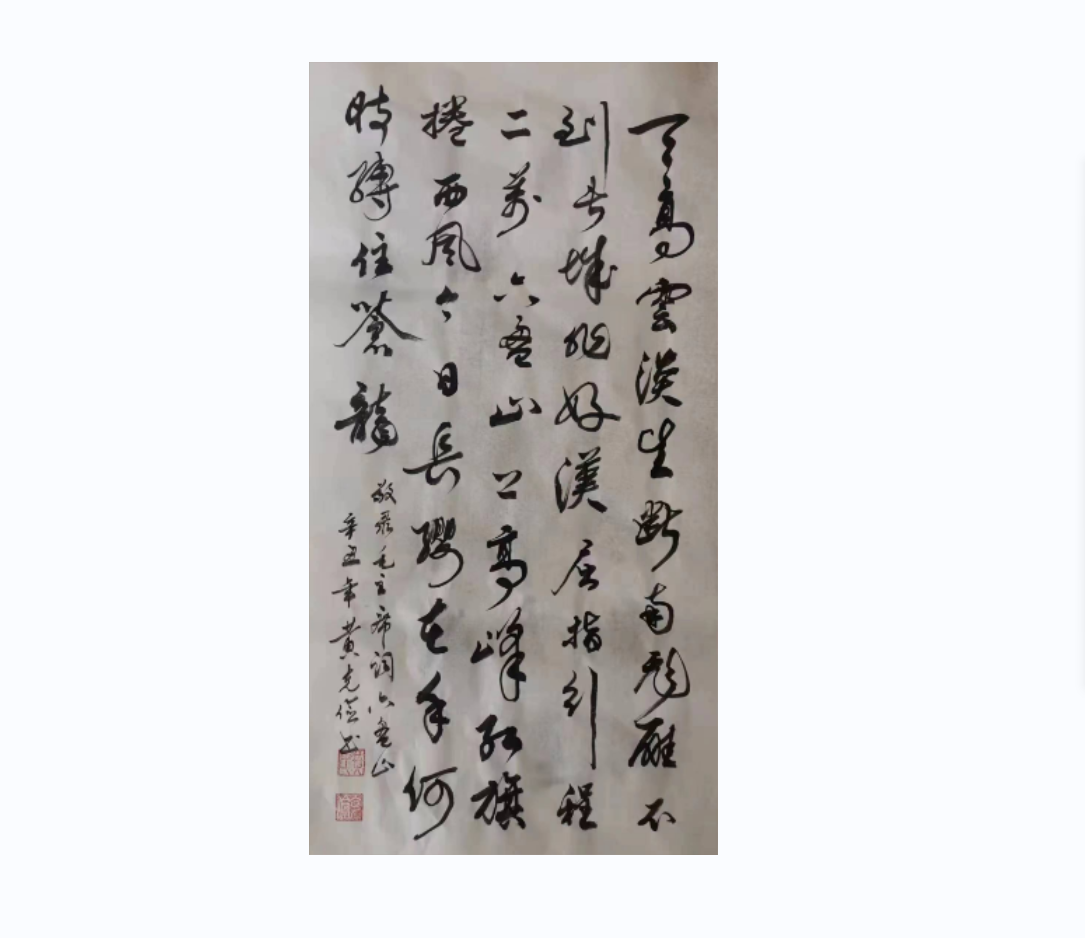 天高雲淡望断南飛雁不
到長城非好漢屈指行程
二萬六盘山上高峰红旗
捲西風今日長纓在手何
時縛住蒼龍
敬录毛主席词六盘山
辛丑年黄克俭书